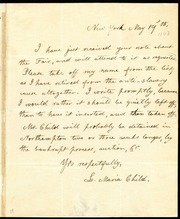 New York May 19th
I have just received your note about
the Fair, and will attend to it as requested.
Please take off my name from the list,
as I have retired from the anti-slavery
cause altogether. I write promptly, because
I would rather it should be quietly left off,
than to have it inserted, and then taken off.
Mr. Child will probably be detained in
Northampton two or three weeks longer, by
the bankrupt process, auction, &c.
Yrs respectfully,
L. Maria Child.